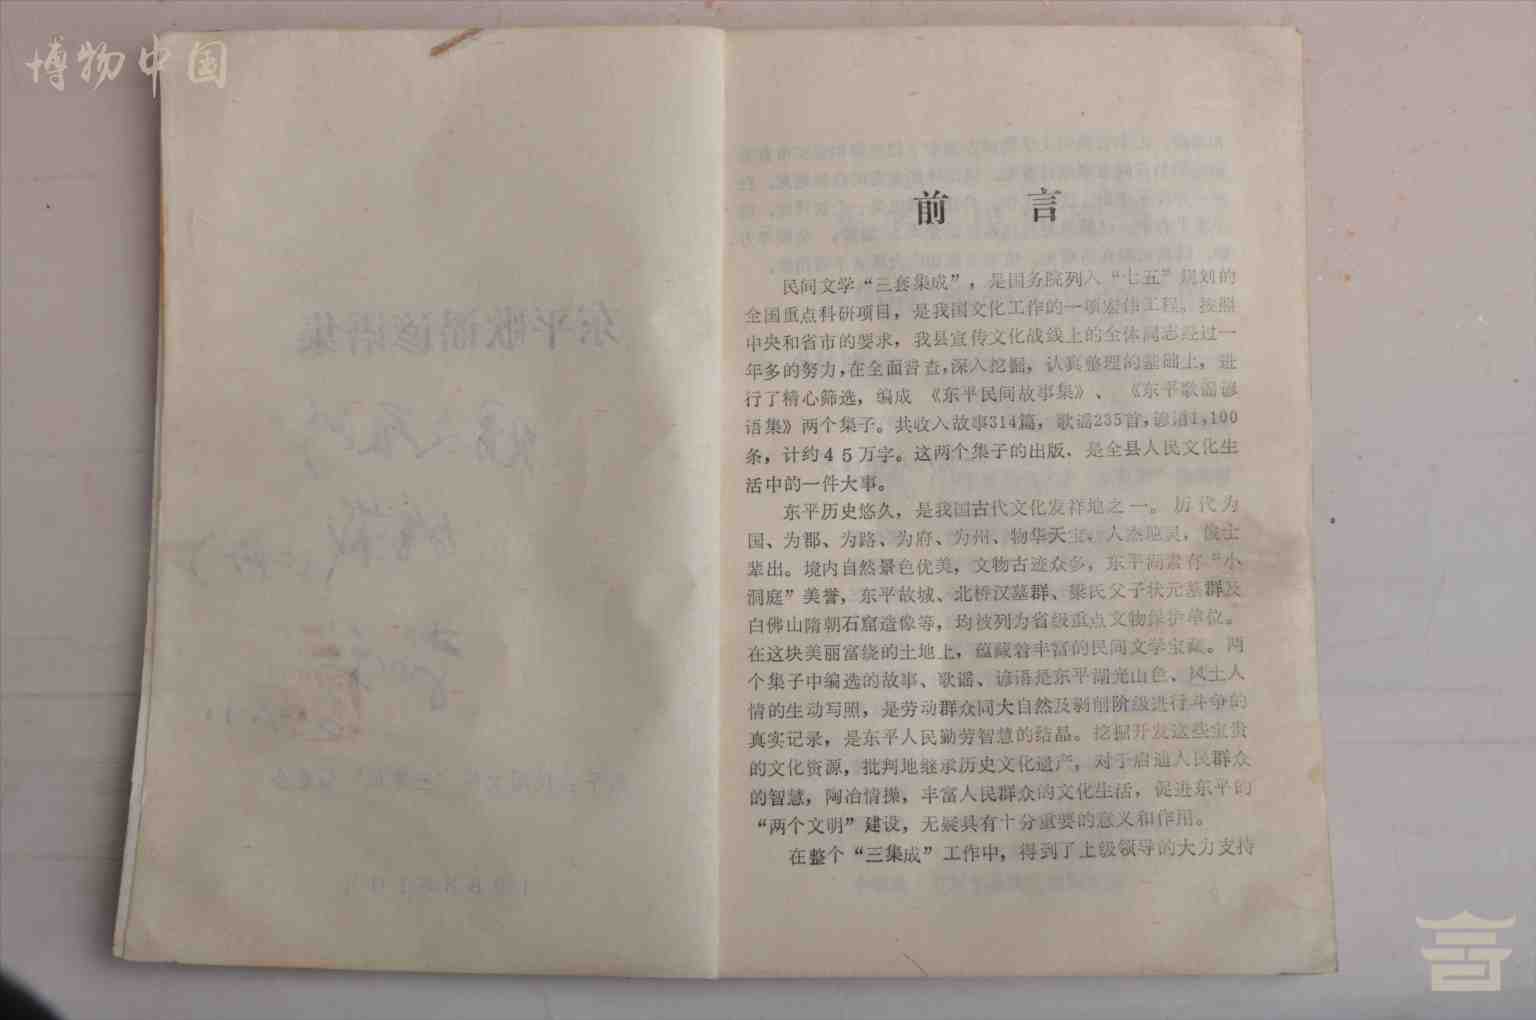 博物中国
前言
民间文学“三套集成”，是国务院列入“七五”规划的
全国重点科研项目，是我国文化工作的一项宏伟工程。按照
中央和省市的要求，我县宣传文化战线上的全体同志经过一
年多的努力，在全面普查，深入挖掘，认真整理的基础上，进
行了精心筛选，编成《东平民间故事集》、《东平歌谣谚
语集》两个集子。共收入故事314篇，歌谣235首，谚语1,100
条，计约45万字。这两个集子的出版，是全县人民文化生
活中的一件大事。
东平历史悠久，是我国古代文化发祥地之一。历代为
国、为郡、为路、为府、为州、物华天宝，人杰地灵，俊士
辈出。境内自然景色优美，文物古迹众多，东平湖素有“小
洞庭”美誉，东平故城、北桥汉墓群、梁氏父子状元墓群及
白佛山隋朝石窟造像等，均被列为省级重点文物保护单位。
在这块美丽富绕的土地上，蕴藏着丰富的民间文学宝藏。两
个集子中编选的故事、歌谣、谚语是东平湖光山色、风土人
情的生动写照，是劳动群众同大自然及剥削阶级进行斗争的
真实记录，是东平人民勤劳智慧的结晶。挖掘开发这些宝贵
的文化资源，批判地继承历史文化遗产，对于启迪人民群众
的智慧，陶冶情操，丰富人民群众的文化生活，促进东平的
“两个文明”建设，无疑具有十分重要的意义和作用。
在整个“三集成”工作中，得到了上级领导的大力支持